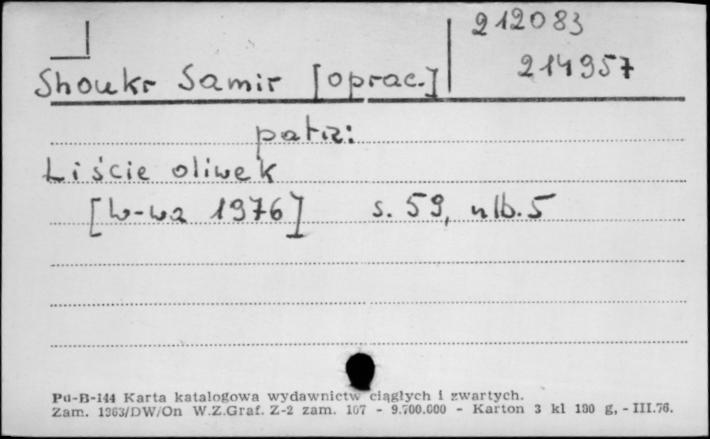 212083
Shoukr Samir [oprac.] 214957
patrz:
Liście oliwek
[W-wa 1976] s. 59, nlb. 5
Pu-B-144 Karta katalogowa wydawnictw ciągłych i zwartych.
Zam. 1363/DW/On W.Z.Graf. Z-2 zam. 107 - 9.700.000 - Karton 3 kl 190 g, - III.76.